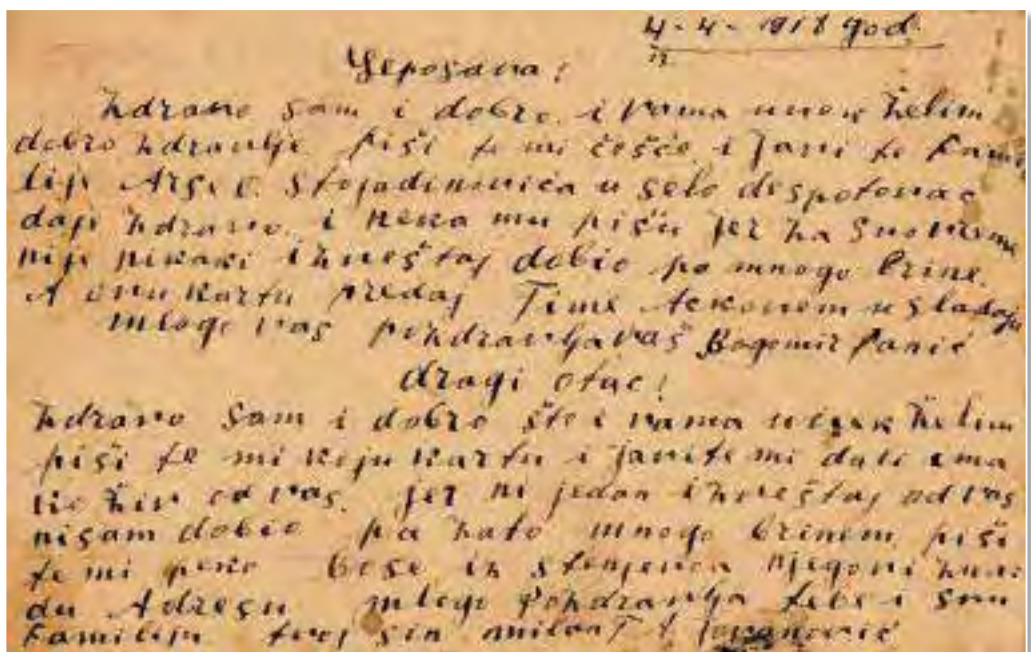 4-4-1918 god.
Yeposava!
Zdravo sam i dobro i vama uvek želim
dobro zdravlje piši te mi češće i javi te fami
liji Arse Stojadinovića u selo despotovac
daje zdravo i neka mu pišu jer za svo vreme
nije nikaki izveštaj dobio po mnogo brine.
A ovu kartu predaj Time
mlogo vas pozdravlja vaš Bogomir Panić
dragi otac!
Zdravo sam i dobro što i vama uvek želim
piši te mi koju kartu i javite mi dali ima
ko živ od vas. jer ni jedan izveštaj od vas
nisam dobio pa zato mnogo brinem, piši
te mi preko Bose iz njegovi
du Adresu mlogo pozdravlja tebe i svu
familiju tvoj sin milan Jovanović